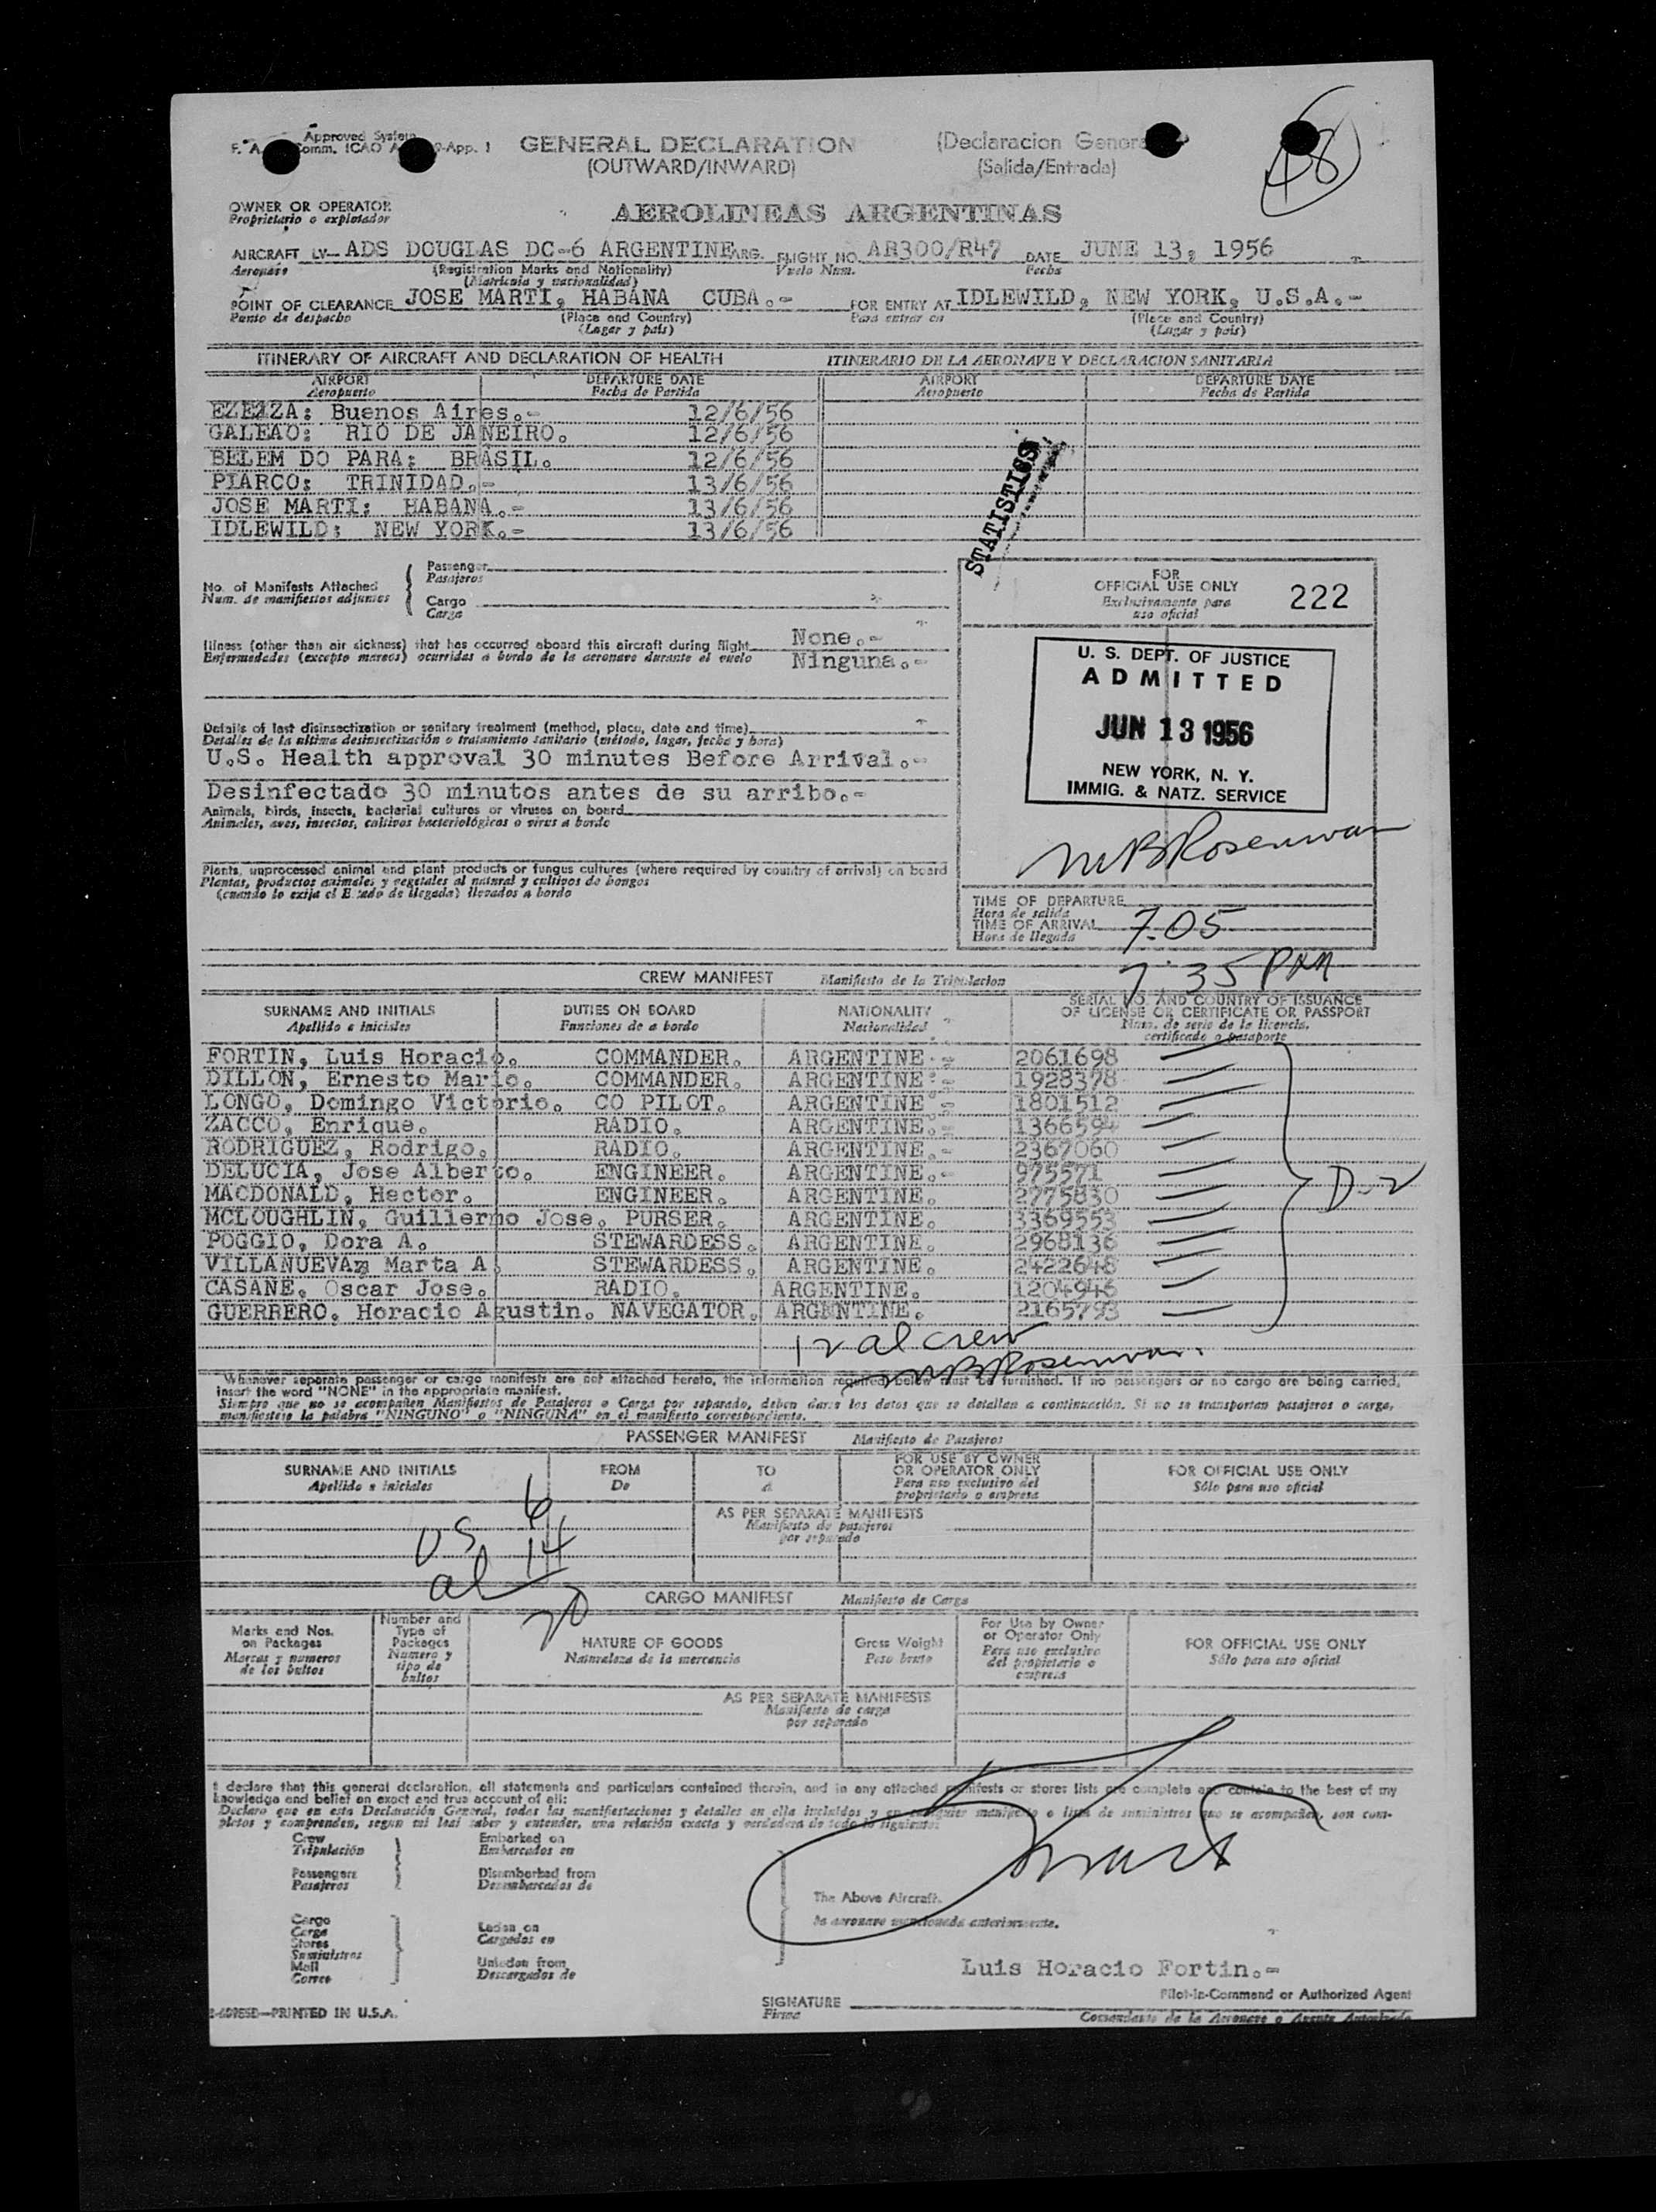 Approved System
GENERAL DECLARATION (Declaracion General
(OUTWARD/INWARD) (Salida/Entrada)
48
OWNER OR OPERATOR
Proprietario o explotador
AEROLINEAS ARGENTINAS
AIRCRAFT LV- ADS DOUGLAS DC-6 ARGENTINE ARG. FLIGHT NO. AR300/R47 DATE JUNE 13, 1956
Aeronave (Registration Marks and Nationality) Vuelo Num. Fecha
(Matricula y nacionalidad)
POINT OF CLEARANCE JOSE MARTI, HABANA CUBA.- FOR ENTRY AT IDLEWILD, NEW YORK, U.S.A.-
Punto de despacho (Place and Country) Para entrar en (Place and Country)
(Lugar y país) (Lugar y país)
ITINERARY OF AIRCRAFT AND DECLARATION OF HEALTH ITINERARIO DE LA AERONAVE Y DECLARACION SANITARIA
AIRPORT DEPARTURE DATE AIRPORT DEPARTURE DATE
Aeropuerto Fecha de Partida Aeropuerto Fecha de Partida
EZEIZA: Buenos Aires.- 12/6/56
GALEAO: RIO DE JANEIRO. 12/6/56
BELEM DO PARA: BRASIL. 12/6/56
PIARCO: TRINIDAD.- 13/6/56
JOSE MARTI: HABANA.- 13/6/56
IDLEWILD: NEW YORK.- 13/6/56
STATISTICS
No. of Manifests Attached
Num. de manifiestos adjuntos
Passenger
Pasajeros
Cargo
Carga
FOR
OFFICIAL USE ONLY 222
Exclusivamente para
uso oficial
Illness (other than air sickness) that has occurred aboard this aircraft during flight None.-
Enfermedades (excepto mareos) ocurridas a bordo de la aeronave durante el vuelo Ninguna.-
U. S. DEPT. OF JUSTICE
ADMITTED
JUN 13 1956
NEW YORK, N. Y.
IMMIG. & NATZ. SERVICE
Details of last disinsectization or sanitary treatment (method, place, date and time)
Detalles de la ultima desinsectización o tratamiento sanitario (método, lugar, fecha y hora)
U.S. Health approval 30 minutes Before Arrival.-
Desinfectado 30 minutos antes de su arribo.-
Animals, birds, insects, bacterial cultures or viruses on board
Animales, aves, insectos, cultivos bacteriológicos o virus a bordo
Plants, unprocessed animal and plant products or fungus cultures (where required by country of arrival) on board
Plantas, productos animales y vegetales al natural y cultivos de hongos
(cuando lo exija el Estado de llegada) llevados a bordo
TIME OF DEPARTURE
Hora de salida
TIME OF ARRIVAL 7.05
Hora de llegada
7:35 PM
CREW MANIFEST Manifiesto de la Tripulacion
SURNAME AND INITIALS DUTIES ON BOARD NATIONALITY SERIAL NO. AND COUNTRY OF ISSUANCE
OF LICENSE OR CERTIFICATE OR PASSPORT
Apellido e iniciales Funciones de a bordo Nacionalidad Num. de serie de la licencia,
certificado o pasaporte
FORTIN, Luis Horacio. COMMANDER. ARGENTINE.- 2061698
DILLON, Ernesto Mario. COMMANDER. ARGENTINE.- 1928378
LONGO, Domingo Victorio. CO PILOT. ARGENTINE.- 1801512
ZACCO, Enrique. RADIO. ARGENTINE.- 1366594
RODRIGUEZ, Rodrigo. RADIO. ARGENTINE.- 2367060
DELUCIA, Jose Alberto. ENGINEER. ARGENTINE.- 975571
MACDONALD, Hector. ENGINEER. ARGENTINE. 2775830
MCLOUGHLIN, Guillermo Jose. PURSER. ARGENTINE. 3369553
POGGIO, Dora A. STEWARDESS. ARGENTINE. 2968136
VILLANUEVA, Marta A. STEWARDESS. ARGENTINE. 2422648
CASANE, Oscar Jose. RADIO. ARGENTINE. 1204946
GUERRERO, Horacio Agustin. NAVEGATOR. ARGENTINE. 2165793
D-2
12 al crew
Whenever separate passenger or cargo manifests are not attached hereto, the information required below must be furnished. If no passengers or no cargo are being carried,
insert the word "NONE" in the appropriate manifest.
Siempre que no se acompañen Manifiestos de Pasajeros o Carga por separado, deben darse los datos que se detallan a continuación. Si no se transportan pasajeros o carga,
manifiestese la palabra "NINGUNO" o "NINGUNA" en el manifiesto correspondiente.
PASSENGER MANIFEST Manifiesto de Pasajeros
SURNAME AND INITIALS FROM TO FOR USE BY OWNER
OR OPERATOR ONLY FOR OFFICIAL USE ONLY
Apellido e iniciales De a Para uso exclusivo del
propietario o empresa Sólo para uso oficial
AS PER SEPARATE MANIFESTS
Manifiesto de pasajeros
por separado
US 6
al 14
20
CARGO MANIFEST Manifiesto de Carga
Marks and Nos.
on Packages
Marcas y numeros
de los bultos
Number and
Type of
Packages
Numero y
tipo de
bultos
NATURE OF GOODS
Naturaleza de la mercancia
Gross Weight
Peso bruto
For Use by Owner
or Operator Only
Para uso exclusivo
del propietario o
empresa
FOR OFFICIAL USE ONLY
Sólo para uso oficial
AS PER SEPARATE MANIFESTS
Manifiesto de carga
por separado
I declare that this general declaration, all statements and particulars contained therein, and in any attached manifests or stores lists are complete and contain to the best of my
knowledge and belief an exact and true account of all:
Declaro que en esta Declaración General, todas las manifestaciones y detalles en ella incluidos y en cualquier manifiesto o lista de suministros que se acompañen, son com-
pletos y comprenden, segun mi leal saber y entender, una relación exacta y verdadera de todo lo siguiente:
Crew
Tripulación
Passengers
Pasajeros
Embarked on
Embarcados en
Disembarked from
Desembarcados de
Cargo
Carga
Stores
Suministros
Mail
Correo
Laden on
Cargados en
Unladen from
Descargados de
The Above Aircraft.
la aeronave mencionada anteriormente.
Luis Horacio Fortin.-
Pilot-in-Command or Authorized Agent
SIGNATURE
Firma
Comandante de la Aeronave o Agente Autorizado
PRINTED IN U.S.A.